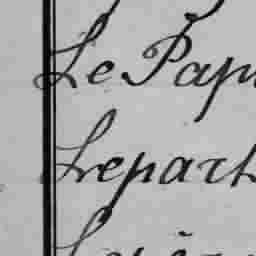 Le Pap
Lepart